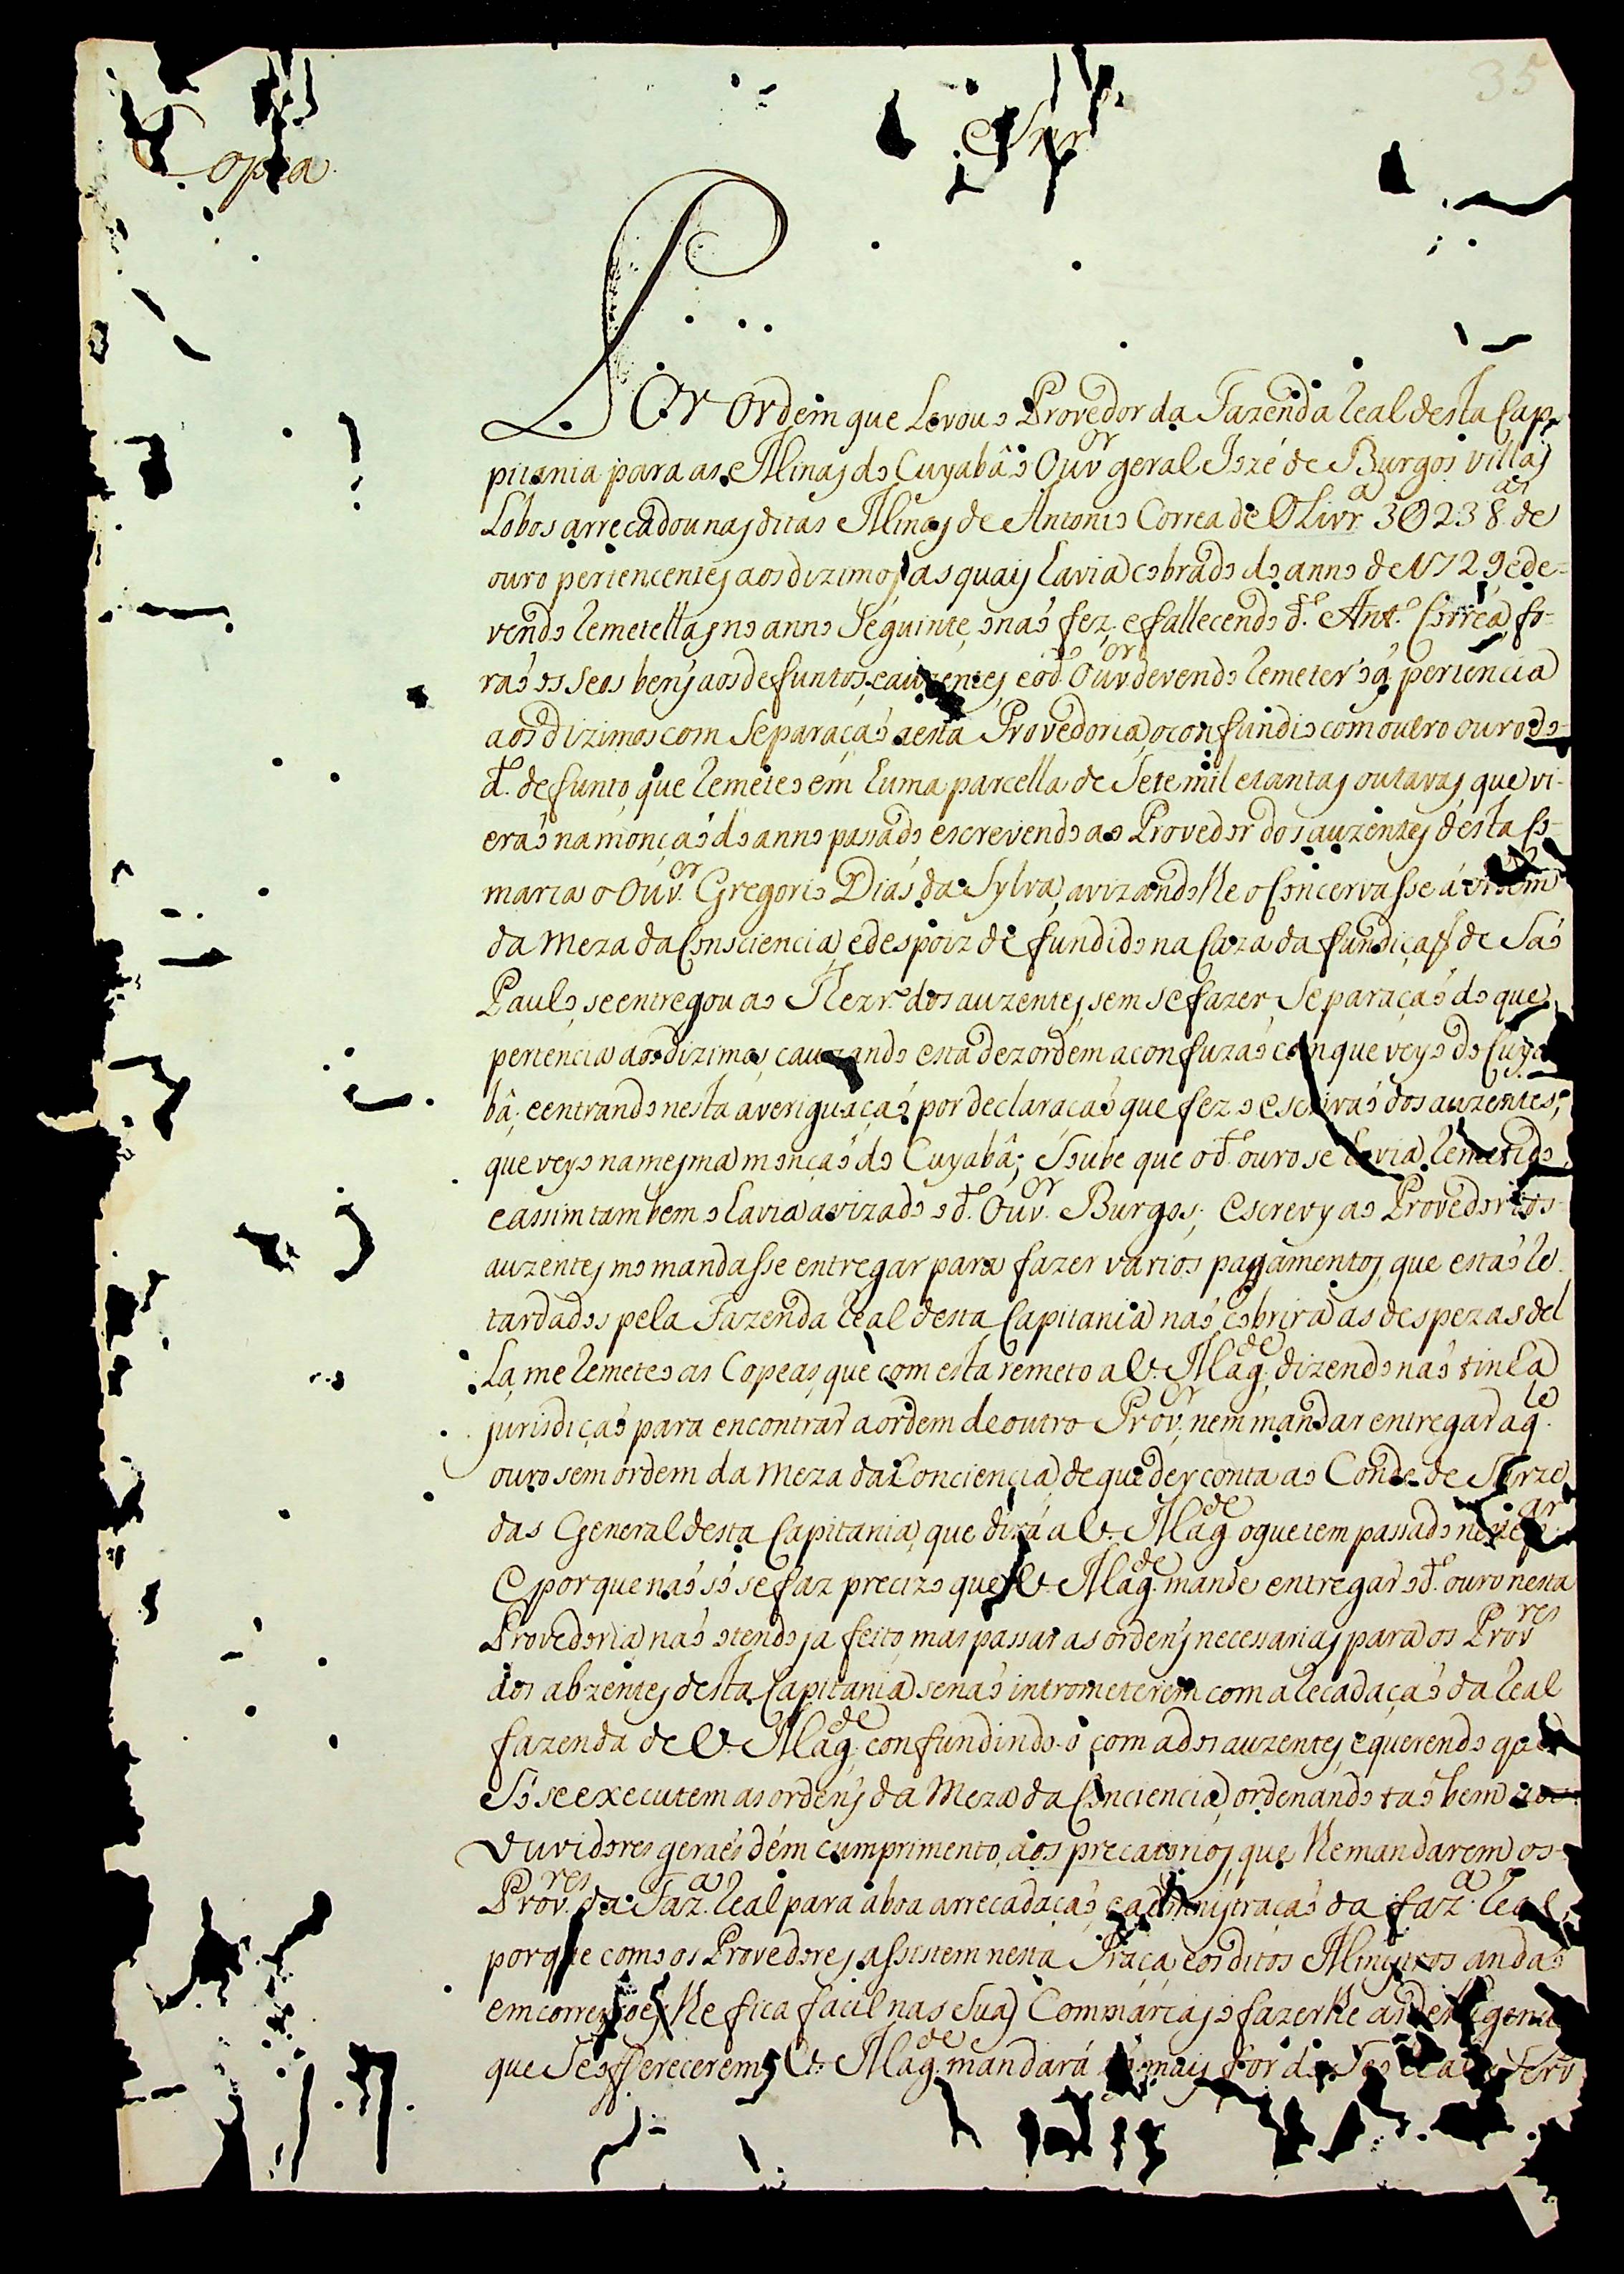 35
Copea
Snr
Por ordem que Levou o Provedor da Fazenda Real desta Cap-
pitania para as Minas do Cuyabâ o Ouv.or geral Jozé de Burgos villas
Lobos arrecadou nas ditas Minas de Antonio Correa de Olivr.a 3023 8.as de
ouro pertencentes aos dizimos, as quais havia cobrado do anno de 1729 e de=
vendo Remetellas no anno Seguinte, o naó fez. e fallecendo o d.to Ant.o Corrêa, fo=
raó os seos bens aos defuntos, e auzentes, e o d.to Ouv.or devendo Remeter o q̃ pertencia
aos dizimos com Separaçaó a esta Provedoria, o confundio com outro ouro do=
d.to defunto, que Remeteo em huma parcella de Sete mil e tantas outavas, que vi-
eraó na monçaó do anno passado escrevendo ao Provedor dos auzentes desta Co=
marca o Ouv.or Gregorio Dias da Sylva, avizandolhe o Concervasse á ordem
da Meza da Consciencia, e despoiz de fundido na Caza da fundiçaó de Saó
Paulo, se entregou ao Thezr.o dos auzentes, sem se fazer Separaçaó do que
pertencia aos dizimos, cauzando esta dezordem a confuzaó com que veyo do Cuya
bâ; e entrando nesta averiguaçaó por declaraçaó que fez o escrivaó dos auzentes,
que veyo na mesma monçaó do Cuyabâ; Soube que o d.to ouro se havia Remetido,
e assim tambem o havia avizado o d.to Ouv.or Burgos; Escrevy ao Provedor dos-
auzentes mo mandasse entregar para fazer varios pagamentos, que estaó Re-
tardados pela Fazenda Real desta Capitania naó cobrir as despezas del
La, me Remeteo as Copeas, que com esta remeto a V. Mag.de, dizendo naó tinha
jurisdiçaó para encontrar a ordem de outro Prov.or, nem mandar entregar aq.le
ouro sem ordem da Meza da Conciencia, de que dey conta ao Conde de Sarze
das General desta Capitania, que dirá a V. Mag.de o que tem passado neste
E porque naó só se faz precizo que V. Mag.de mande entregar o d.to ouro nesta
Provedoria, naó o tendo ja feito, mas passar as ordens necessarias para os Prov.res
dos abzentes desta Capitania senaó intrometerem com a Recadaçaó da Real
fazenda de V. Mag.de confundindo-o com a dos auzentes, e querendo que
Só se executem as ordens da Meza da Conciencia, ordenando taó bem aos
Ouvidores geraes dém cumprimento, aos precatorios, que lhe mandarem os-
Prov.res da Faz.a Real para a boa arrecadaçaó, e administraçaó da faz.a Real,
porque como os Provedores assistem nesta Praça, e os ditos Ministros andaó
em correyçoés, lhe fica facil nas Suas Commarcas o fazerlhe as deligencias
que Se offerecerem; V. Mag.de mandará o q mais for do Seo Real Servo